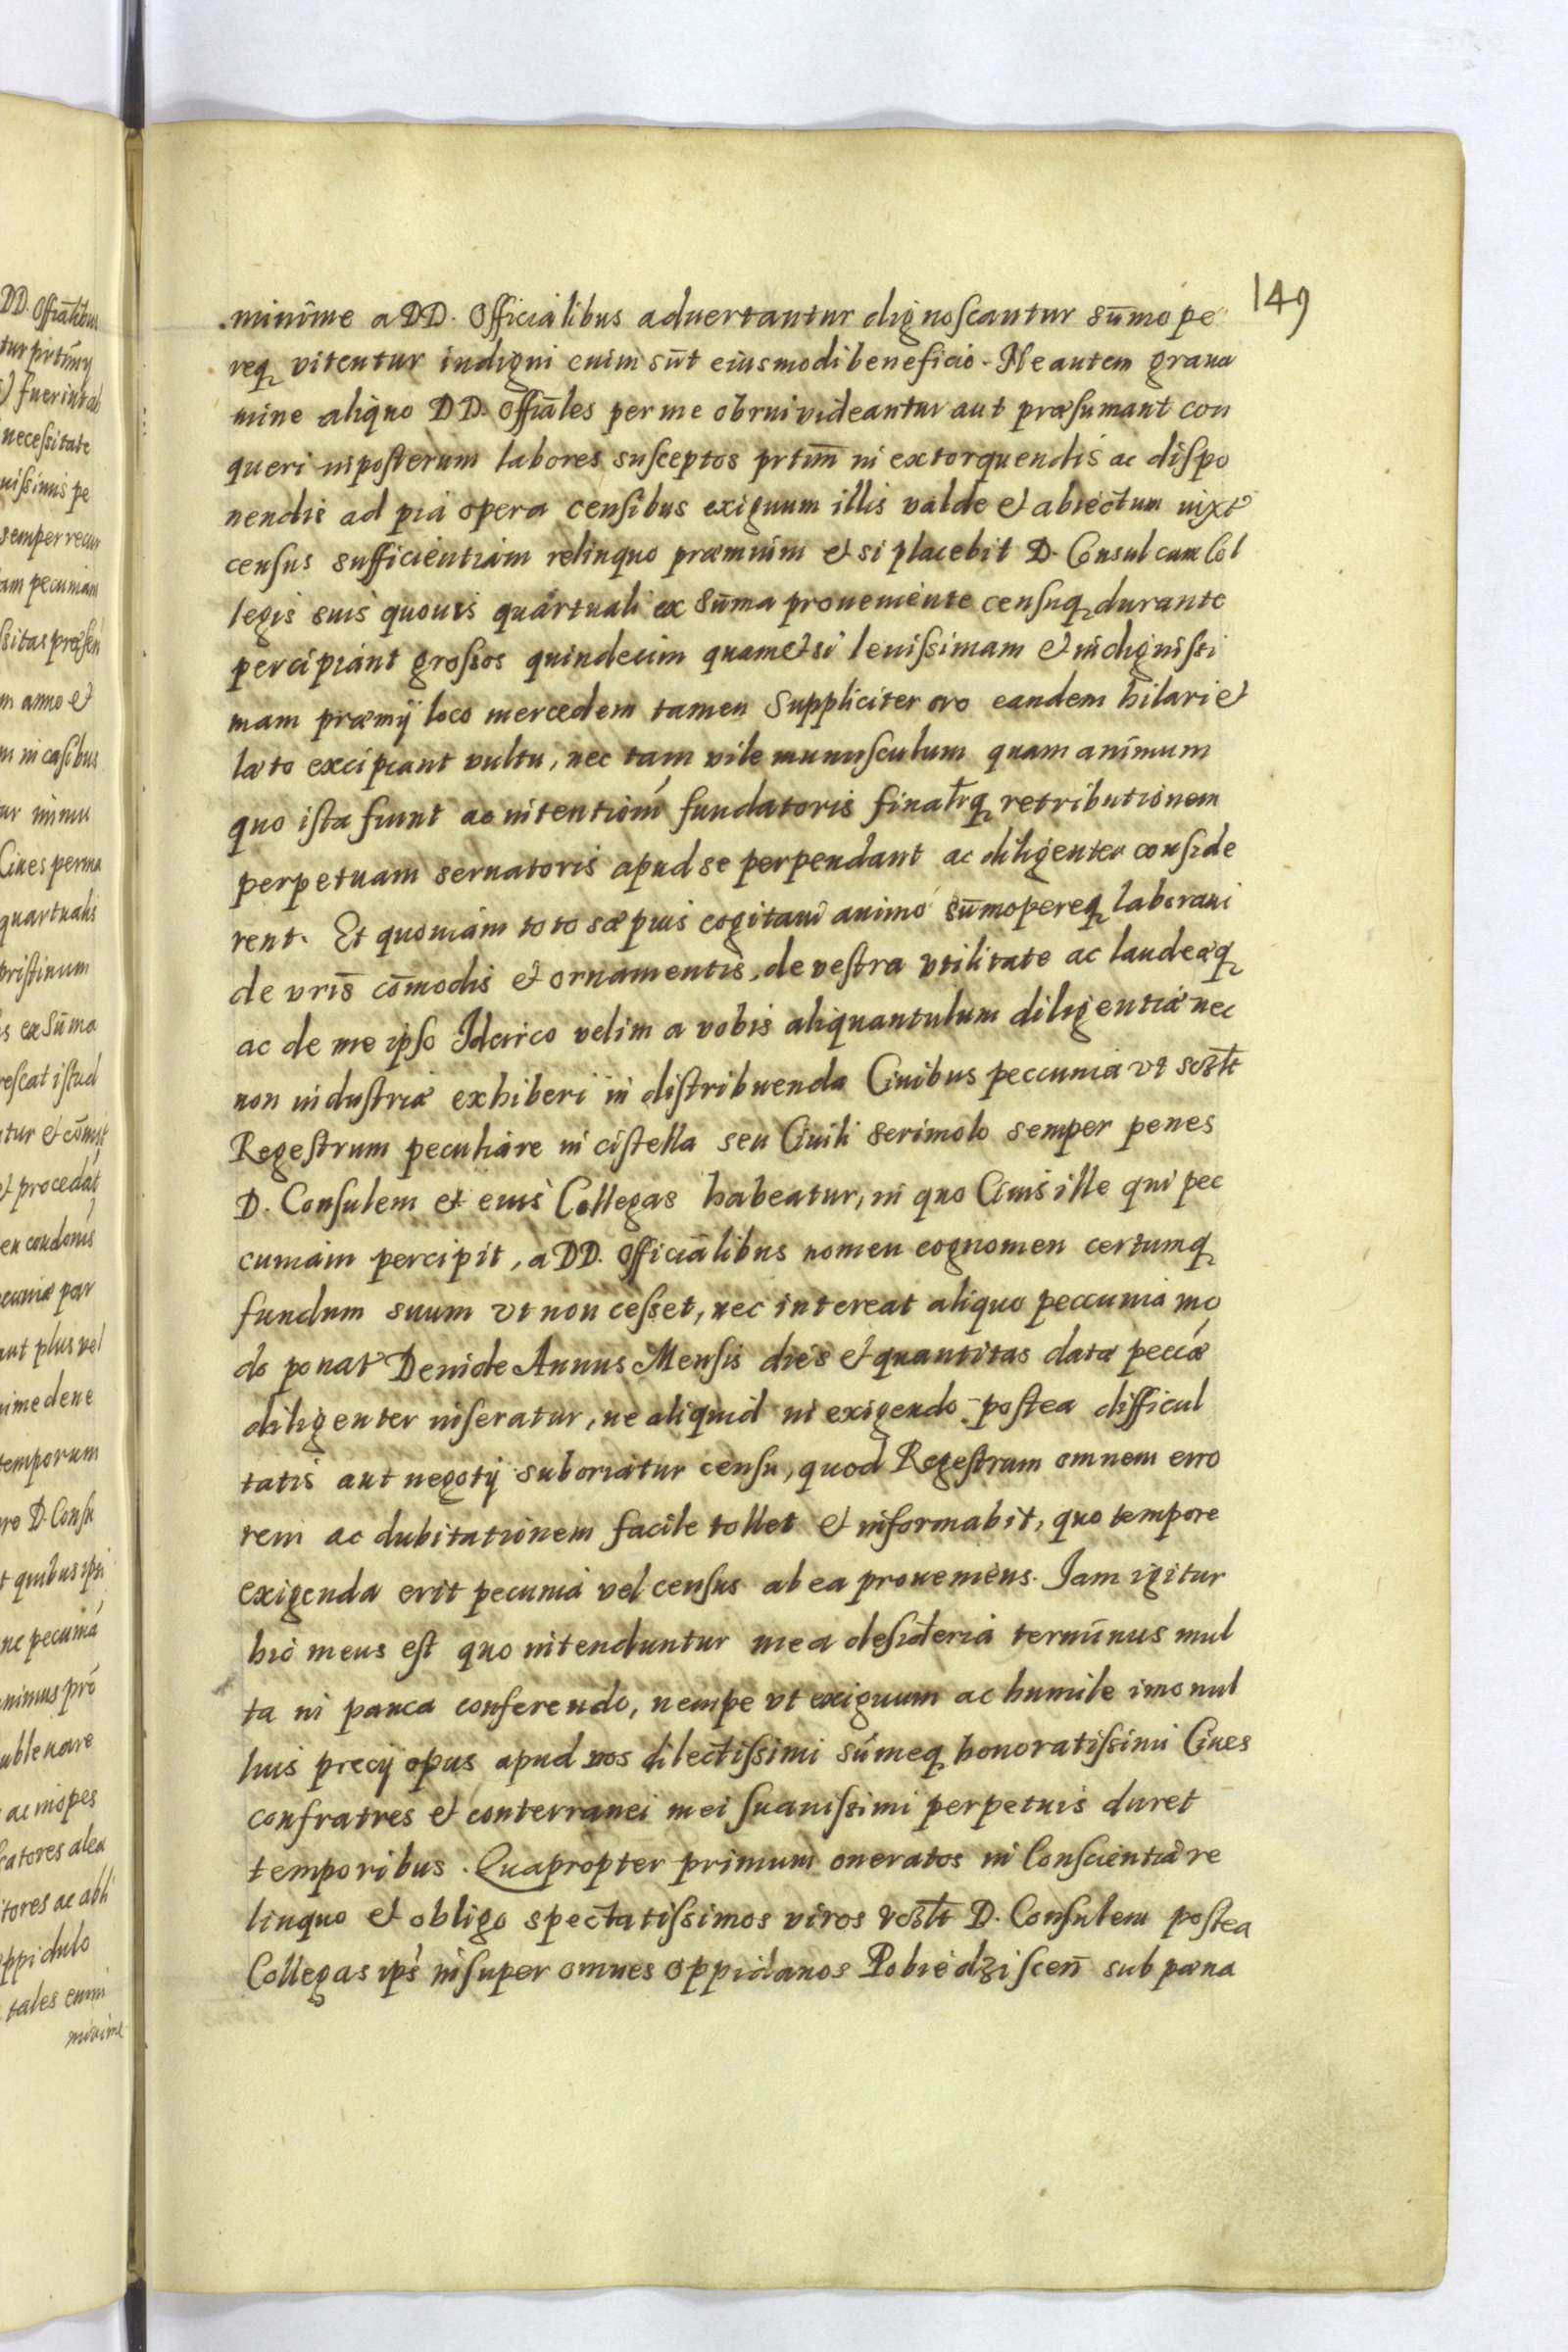 149
minime a DD. Officialibus aduertantur dignoscantur sum̄o pe
req, vitentur indigni enim sūt eiusmodi beneficio. Ne autem graua
mine aliquo DD. Offiāles per me obrui videantur aut præsumant con
queri in posterum labores susceptos prtim̄ in extorquendis ac dispo
nendis ad pia opera censibus exiguum illis valde et abiectum iuxt
census sufficientiam relinquo præmium et si placebit D. Consul cum Col
legis suis quouis quartuali ex Sum̄a proueniente censuq, durante
percipiant grossos quindecim quametsi leuissimam et indignissi
mam præmij loco mercedem tamen suppliciter oro eandem hilari et
læto excipiant vultu, nec tam vile munusculum quam animum
quo ista fiunt ac intentiom̄ fundatoris finalrq, retributionem
perpetuam seruatoris apud se perpendant ac diligenter conside
rent. Et quoniam toto sæpius cogitaui animo sum̄opereq, laboraui
de vr̄is com̄odis et ornamentis, de vestra vtilitate ac laude æq,
ac de me ipso Idcirco velim a vobis aliquantulum diligentiæ nec
non industriæ exhiberi in distribuenda Ciuibus peccunia vt sczlt
Regestrum peculiare in cistella seu Ciuili scrimolo semper penes
D. Consulem et eius Collegas habeatur, in quo Ciuis ille qui pec
cuniam percipit, a DD. Officiālibus nomen cognomen certumq,
fundum suum vt non cesset, nec intereat aliquo peccunia mo
do ponat Deinde Annus Mensis dies et quantitas datæ peccæ
diligenter inseratur, ne aliquid in exigendo postea difficul
tatis aut negotij suboriatur censu, quod Regestrum omnem erro
rem ac dubitationem facile tollet et informabit, quo tempore
exigenda erit pecunia vel census ab ea proueniens. Jam igitur
hic meus est quo intenduntur mea desideria terminus mul
ta in pauca conferendo, nempe vt exiguum ac humile imo nul
lius precij opus apud vos dilectissimi súmeq, honoratissimi Ciues
confratres et conterranei mei suauissimi perpetuis duret
temporibus. Quapropter primum oneratos in Conscientia re
linquo et obligo spectatissimos viros vczlt D. Consulem postea
Collegas ips̄ insuper omnes oppidanos Pobiedziscen̄ sub pæna